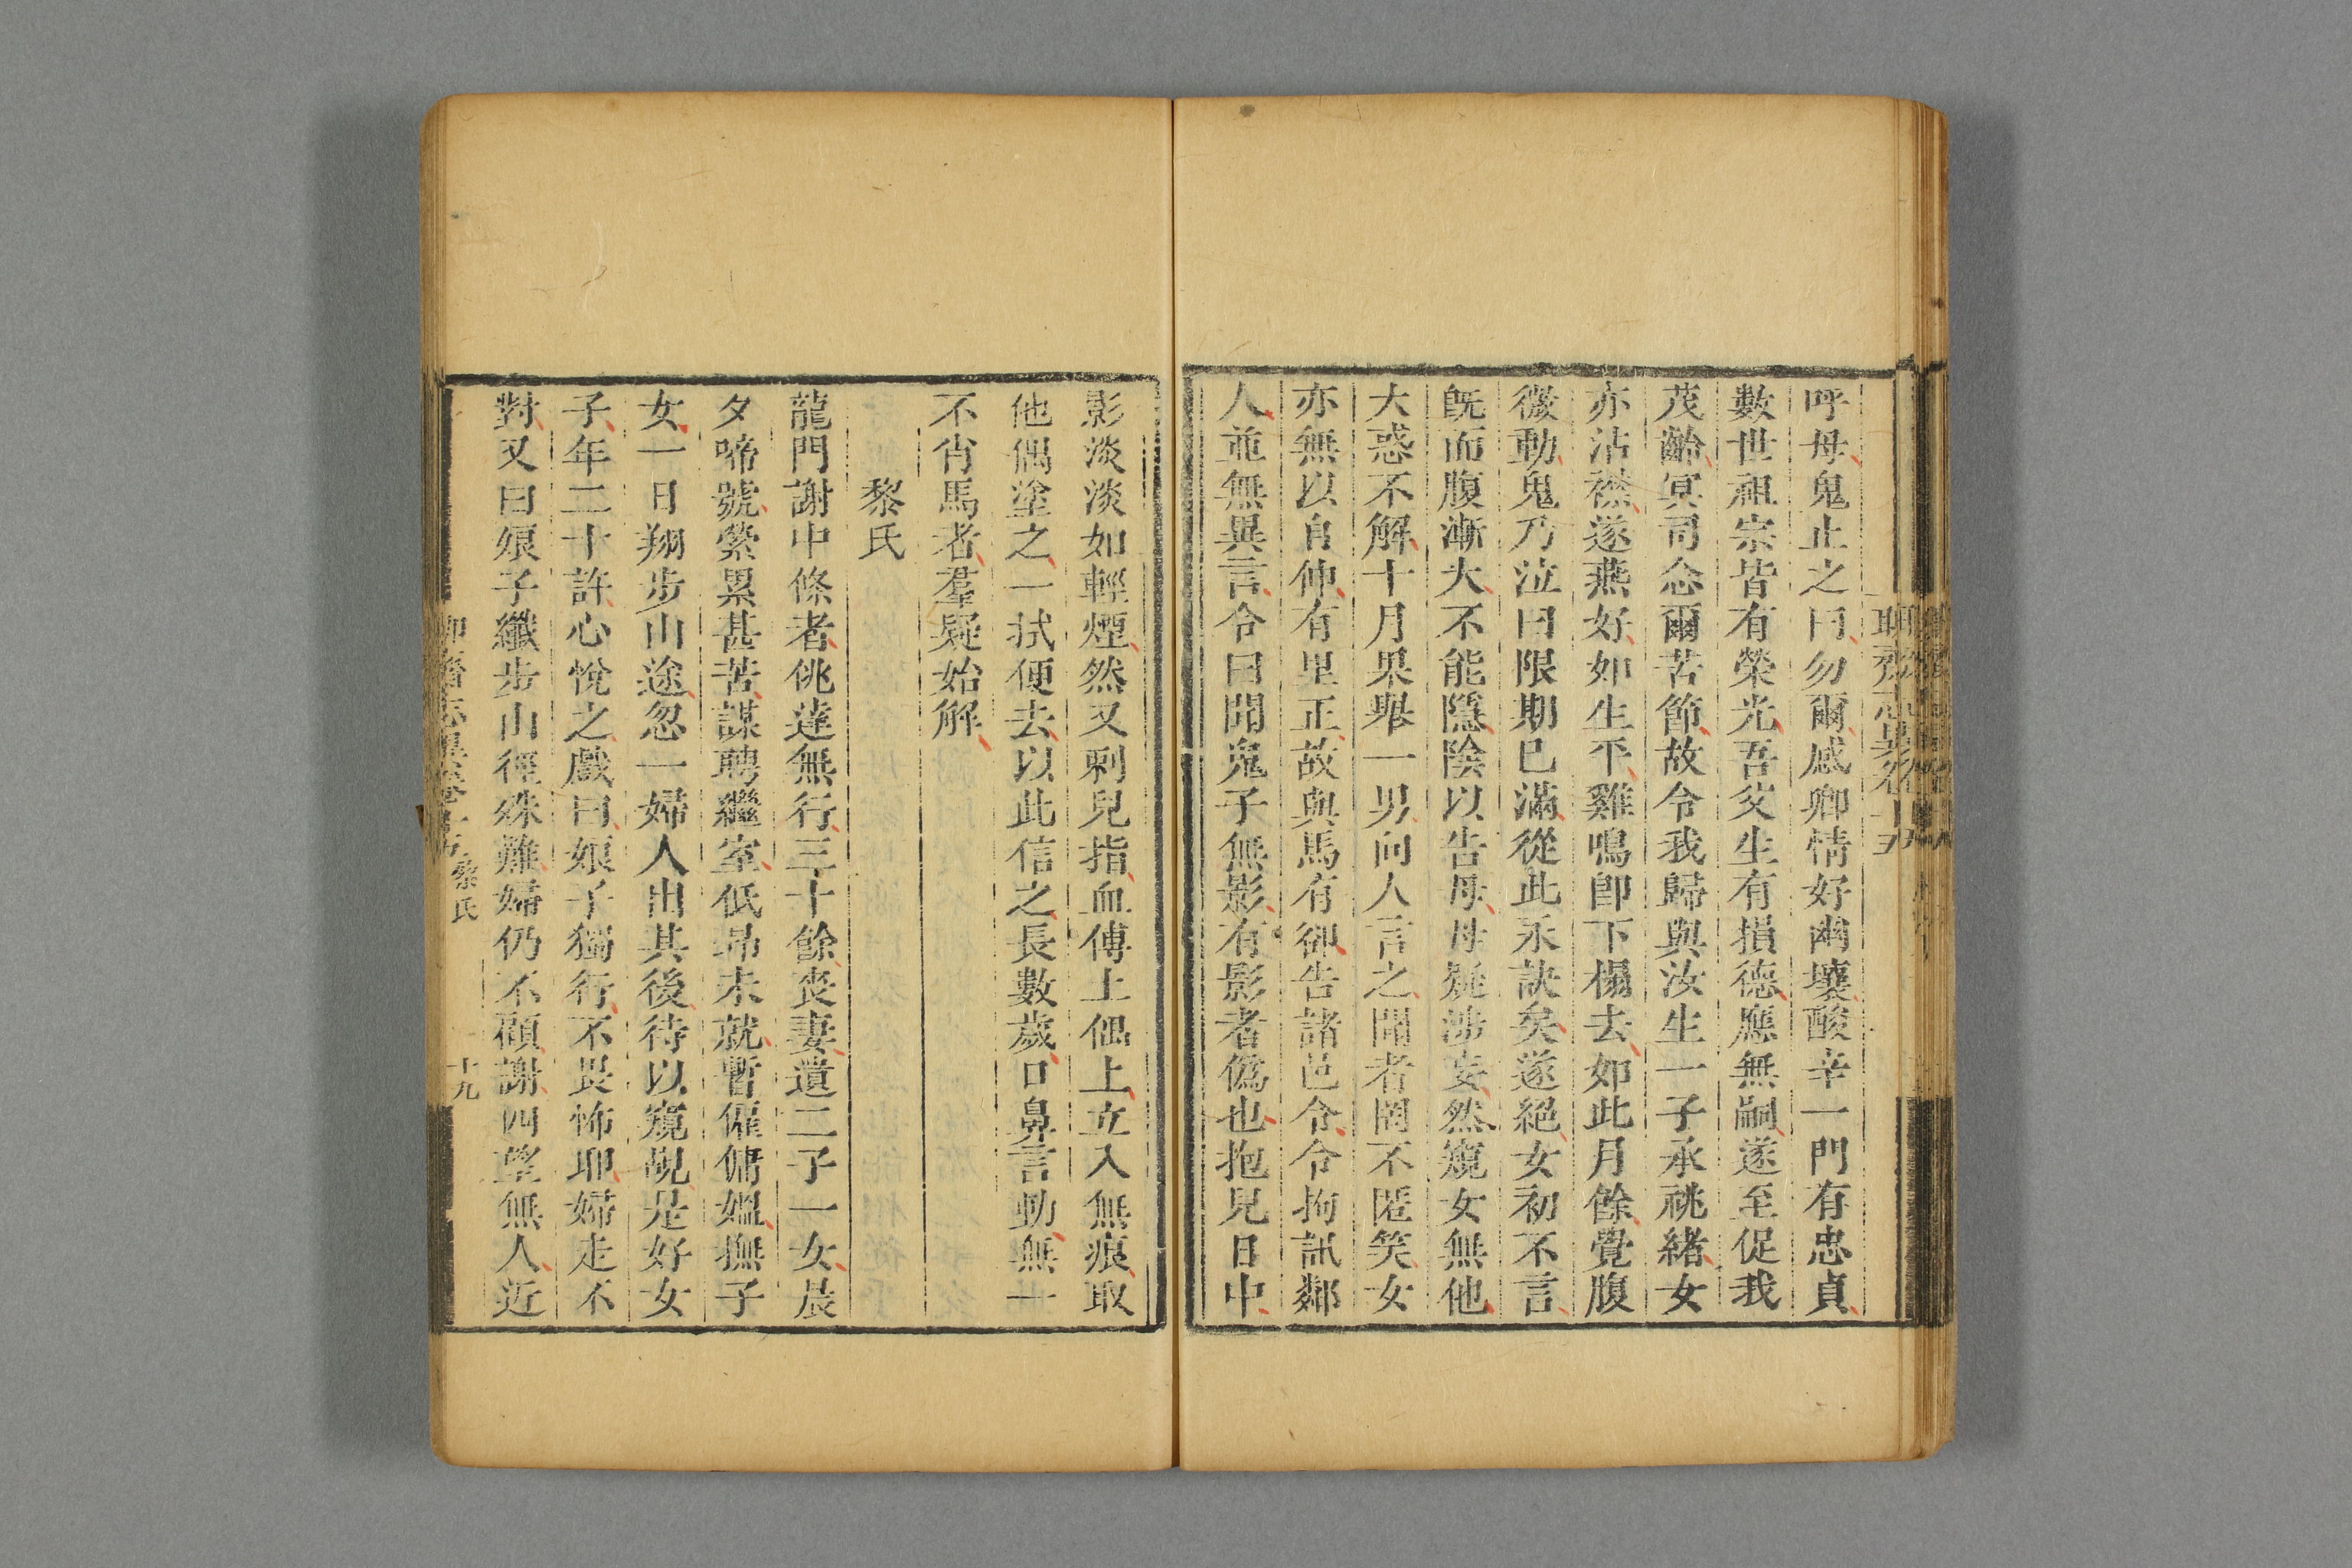 呼母鬼止之曰勿爾感卿情好幽壤酸辛一門有忠貞
數世祖宗皆有榮光吾父生有損德應無嗣遂至促我
茂齡冥司念爾苦節故令我歸與汝生一子承祧緒女
亦沾襟遂燕好如生平雞鳴卽下榻去如此月餘覺腹
微動鬼乃泣曰限期已滿從此永訣矣遂絕女初不言
旣而腹漸大不能隱陰以告母母疑涉妄然窺女無他
大惑不解十月果舉一男向人言之聞者罔不匿笑女
亦無以自伸有里正故與馬有郤告諸邑令令拘訊鄰
人並無異言令曰聞鬼子無影有影者僞也抱兒日中
影淡淡如輕煙然又刺兒指血傅土偶上立入無痕取
他偶塗之一拭便去以此信之長數歲口鼻言動無一
不肖馬者羣疑始解
黎氏
龍門謝中條者佻達無行三十餘喪妻遺二子一女晨
夕啼號縈累甚苦謀聘繼室低昻未就暫僱傭媼撫子
女一日翔步山途忽一婦人出其後待以窺覘是好女
子年二十許心悅之戲曰娘子獨行不畏怖耶婦走不
對又曰娘子纖步山徑殊難婦仍不顧謝四望無人近
黎氏
十九